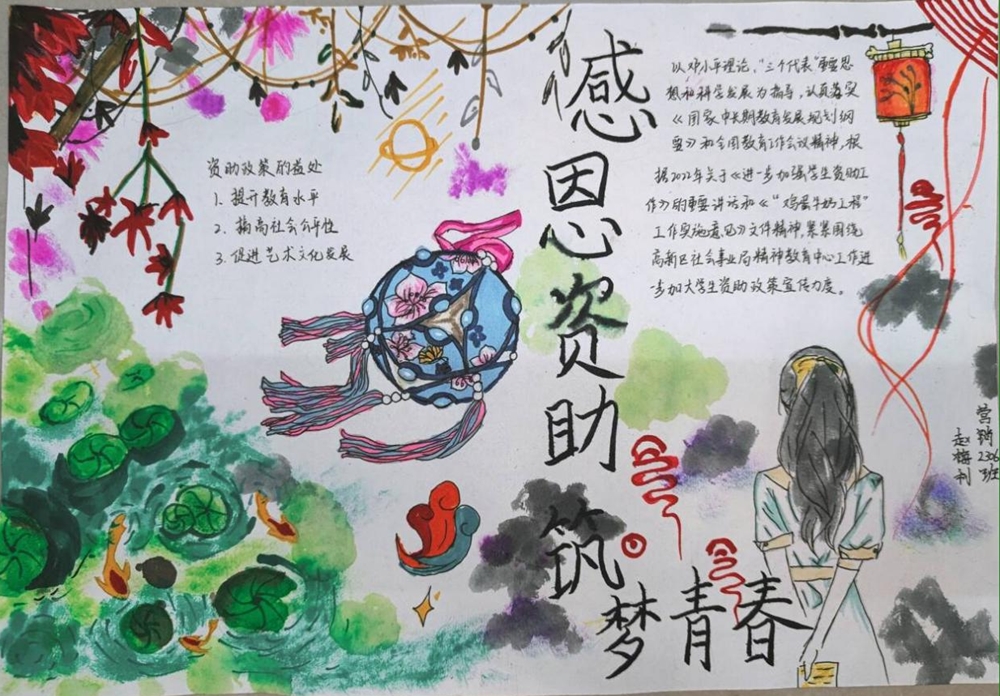 感恩资助
筑梦青春
资助政策的益处
1. 提升教育水平
2. 搞高社会公平性
3. 促进艺术文化发展
以邓小平理论，“三个代表”重要思
想和科学发展为指导，认真落实
《国家中长期教育发展规划纲
要》和全国教育工作会议精神，根
据2022年关于《进一步加强学生资助工
作》的重要讲话和《“鸡蛋牛奶工程”
工作实施意见》文件精神，紧紧围绕
高新区社会事业局精神教育中心工作进
一步加大学生资助政策宣传力度。
营销2306班
赵梅